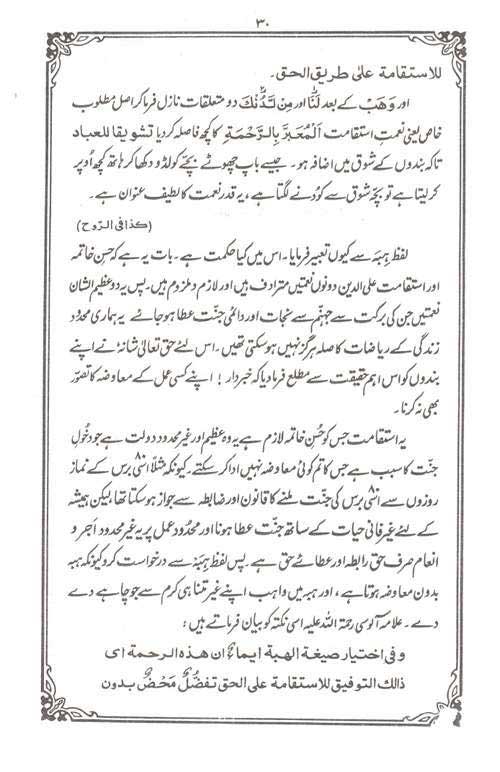 ٣٠
للاستقامة على طريق الحق۔
اور وَهَبْ کے بعد لَنَا اور مِنْ لَّدُنْكَ دو متعلقات نازل فرما کر اصل مطلوب
خاص یعنی نعمتِ استقامت اَلْمُعَبَّرْ بِالرَّحْمَةِ کا کچھ فاصلہ کر دیا تشویقا للعباد
تاکہ بندوں کے شوق میں اضافہ ہو۔ جیسے باپ چھوٹے بچّے کو لڈو دکھا کر ہاتھ کچھ اُوپر
کر لیتا ہے تو بچّہ شوق سے کُودنے لگتا ہے، یہ قدر نعمت کا لطیف عنوان ہے۔
(کذا فی الرّوح)
لفظ ہِبَہ سے کیوں تعبیر فرمایا۔ اس میں کیا حکمت ہے۔ بات یہ ہے کہ حسنِ خاتمہ
اور استقامت علی الدین دونوں نعمتیں مترادف ہیں اور لازم و ملزوم ہیں۔ پس یہ دو عظیم الشان
نعمتیں جن کی برکت سے جہنّم سے نجات اور دائمی جنّت عطا ہو جائے یہ ہماری محدُود
زندگی کے ریاضات کا صلہ ہرگز نہیں ہو سکتی تھیں۔ اس لئے حق تعالیٰ شانہٗ نے اپنے
بندوں کو اس اہم حقیقت سے مطلع فرما دیا کہ خبردار ! اپنے کسی عمل کے معاوضہ کا تصوّر
بھی نہ کرنا۔
یہ استقامت جس کو حُسنِ خاتمہ لازم ہے یہ وہ عظیم اور غیر محدود دولت ہے جو دخُولِ
جنّت کا سبب ہے جس کا تم کوئی معاوضہ نہیں ادا کر سکتے۔ کیونکہ مثلاً انّٰی برس کے نماز
روزوں سے انّٰی برس کی جنّت ملنے کا قانون اور ضابطہ سے جواز ہو سکتا تھا، لیکن ہمیشہ
کے لئے غیر فانی حیات کے ساتھ جنّت عطا ہونا اور محدُود عمل پر یہ غیر محدود اجر و
انعام صرف حق رابطہ اور عطائے حق ہے۔ پس لفظ ہِبَہ سے درخواست کرو کیونکہ ہبہ
بدون معاوضہ ہوتا ہے، اور ہبہ میں واہب اپنے غیر متناہی کرم سے جو چاہے دے
دے۔ علامہ آلوسی رحمۃ اللہ علیہ اسی نکتہ کو بیان فرماتے ہیں :
وفی اختیار صیغة الهبة ایماءٌ ان هذه الرحمة ای
ذالك التوفیق للاستقامة علی الحق تفضّلٌ مَحْضٌ بدون